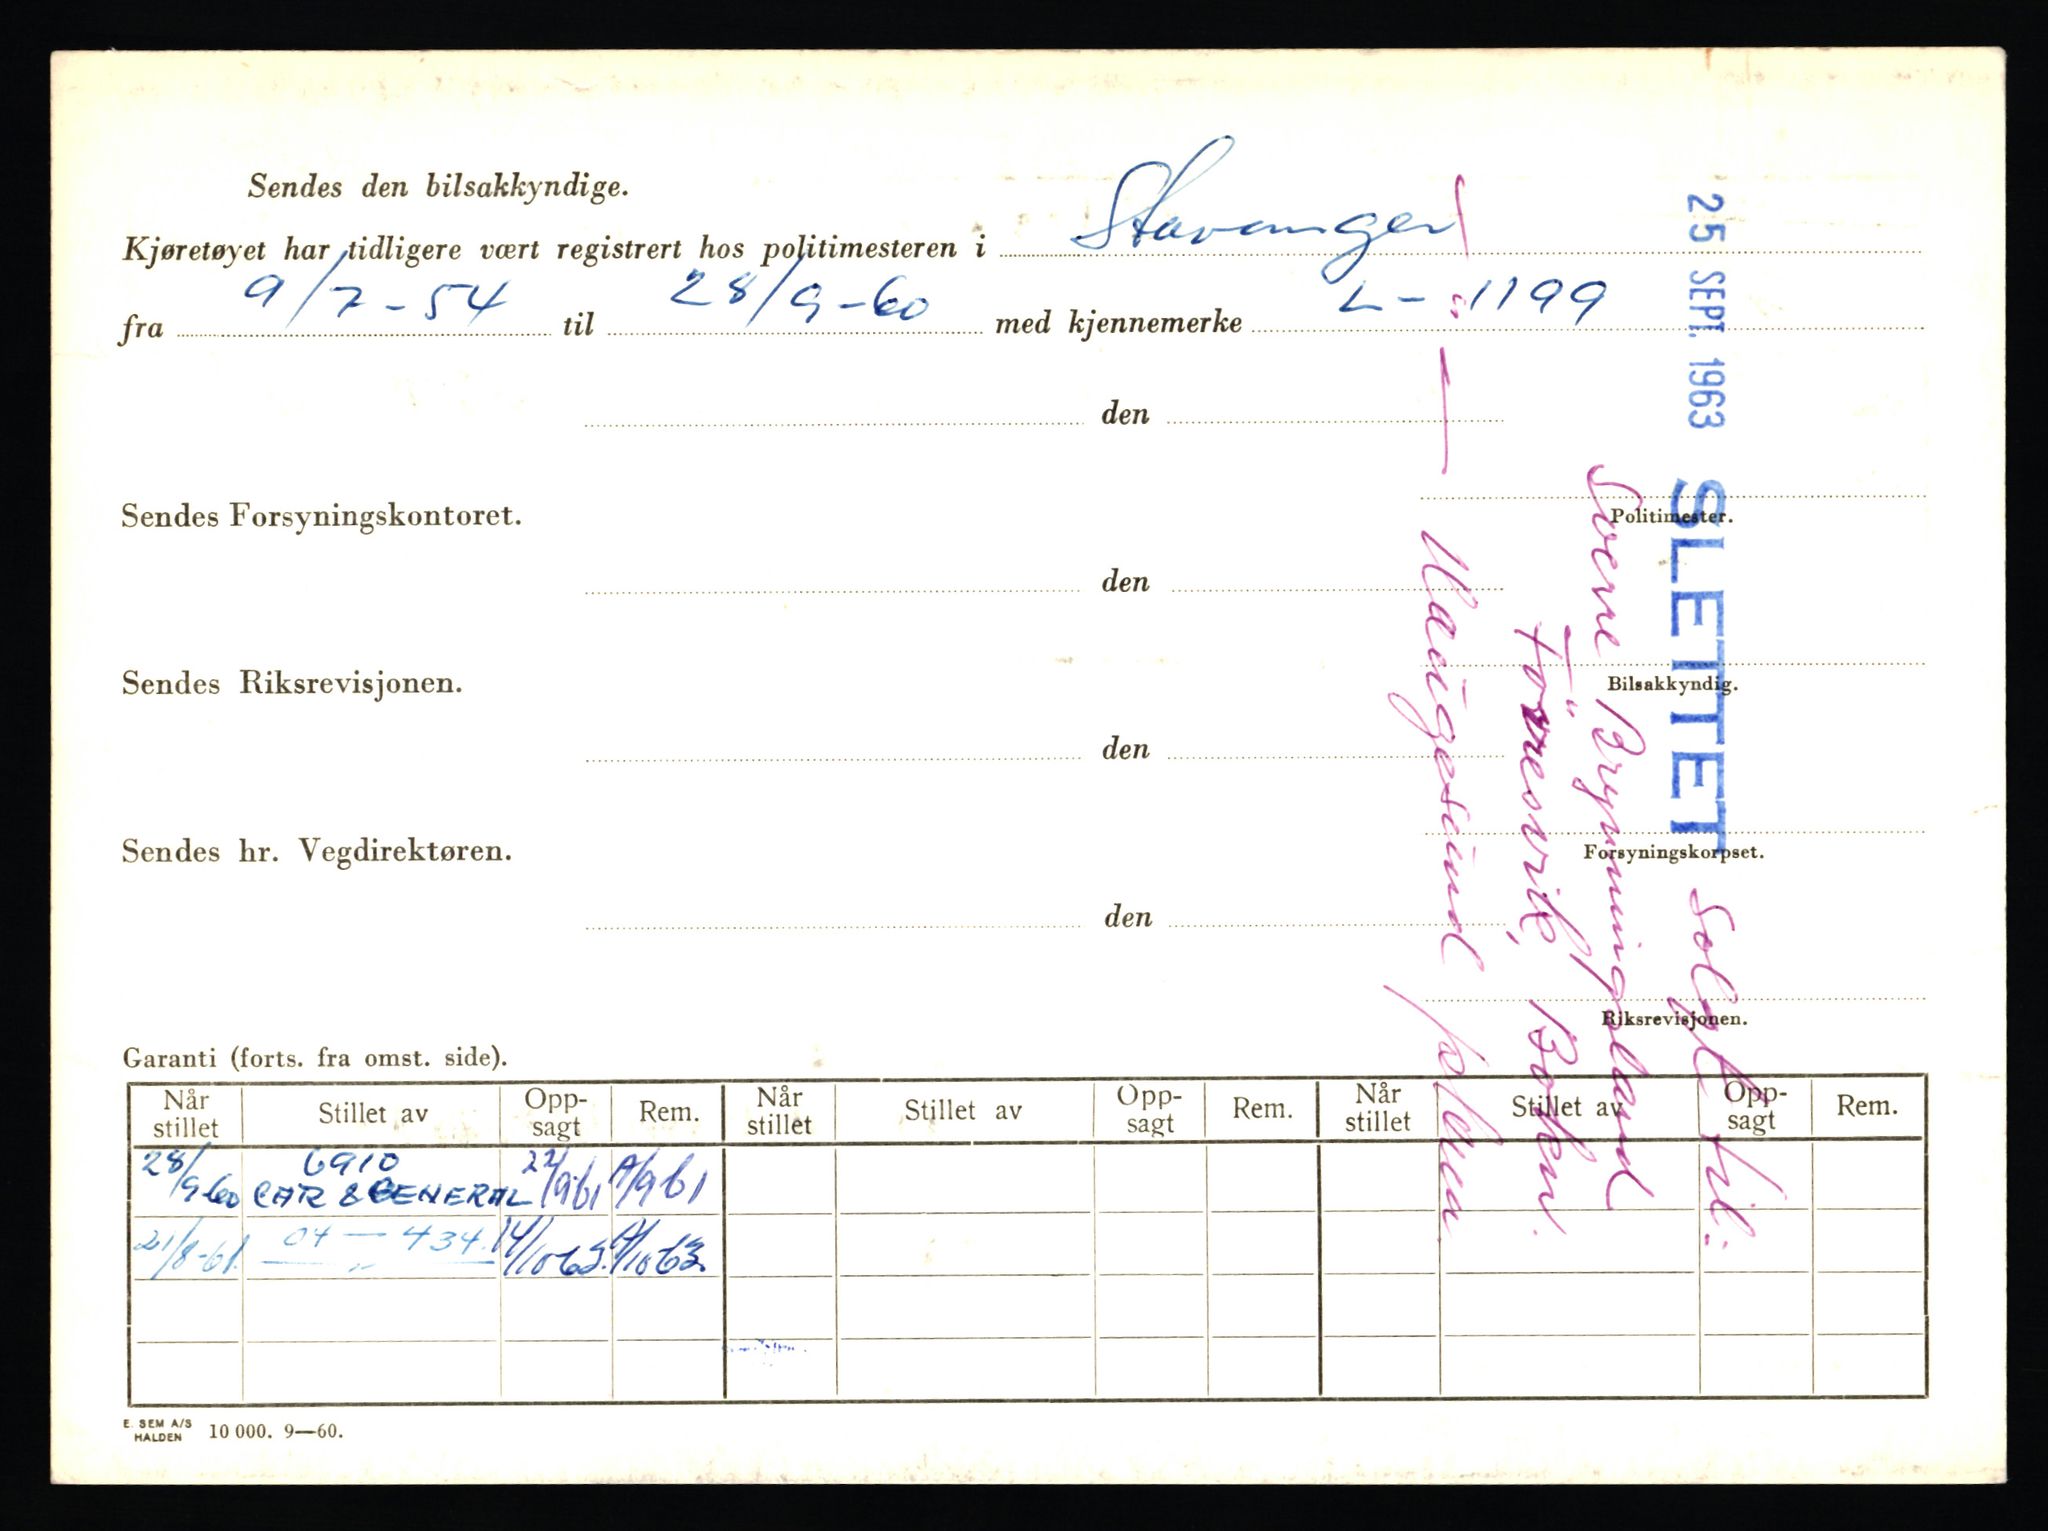 Sendes den bilsakkyndige.
Kjøretøyet har tidligere vært registrert hos politimesteren i Stavanger
fra 9/7-54 til 28/9-60 med kjennemerke L-1199
den
Politimester.
Sendes Forsyningskontoret.
den
Bilsakkyndig.
Sendes Riksrevisjonen.
den
Forsyningskorpset.
Sendes hr. Vegdirektøren.
den
Riksrevisjonen.
25 SEPT. 1963 SLETTET Solgt til:
Sverre Brymmingsland
Føresvik, Bokn.
— " — Haugesund
Garanti (forts. fra omst. side).
Når stillet Stillet av Opp-sagt Rem. Når stillet Stillet av Opp-sagt Rem. Når stillet Stillet av Opp-sagt Rem.
28/9 60 6910 CAR & GENERAL 22/9 61 A/9 61
21/8-61. 04 — 434. 14/10 63. A/10 63.
— " —
E. SEM A/S
HALDEN 10 000. 9—60.